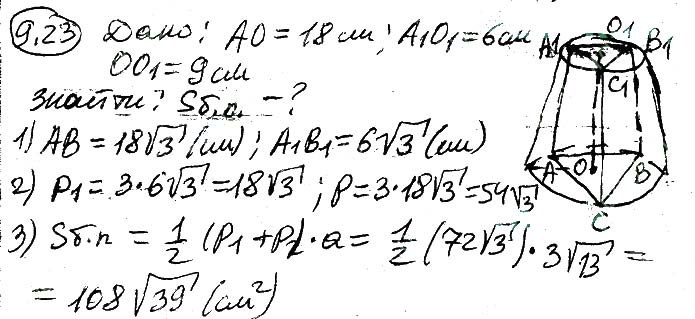 9.23 Дано: AO = 18 см; A1O1 = 6 см
OO1 = 9 см
Знайти: Sб.п. - ?
1) AB = 18√3 (см); A1B1 = 6√3 (см)
2) P1 = 3·6√3 = 18√3; P = 3·18√3 = 54√3
3) Sб.п = 1/2 (P1 + P2)·a = 1/2 (72√3)·3√13 =
= 108√39 (см²)
O1
A1
B1
C1
A
O
B
C